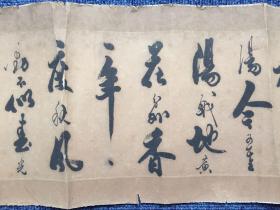 陽今又重
陽戰地黃
花分外香
一年一
度秋風
勁不似春光